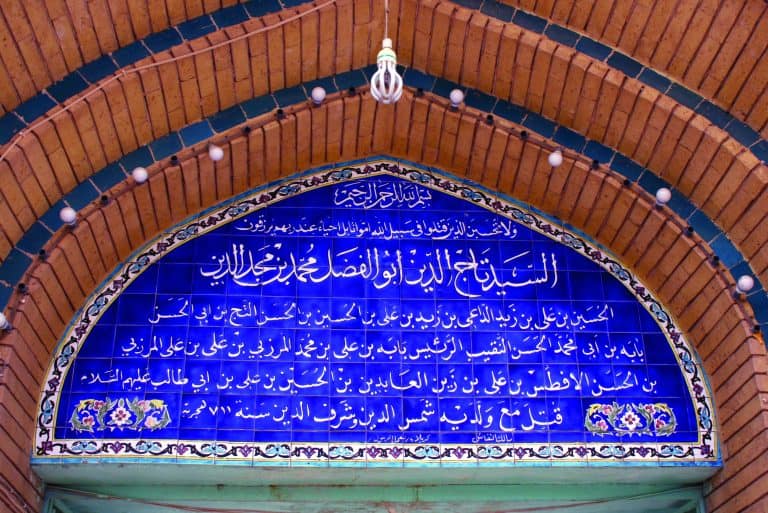 بسم الله الرحمن الرحيم
ولا تحسبن الذين قتلوا في سبيل الله امواتا بل احياء عند ربهم يرزقون
السيد تاج الدين ابو الفضل محمد بن مجد الدين
الحسين بن علي بن زيد الداعي بن زيد بن علي بن الحسين بن الحسن التج بن ابي الحسن
بابه بن أبي محمد الحسن النقيب الرئيس بابه بن علي بن محمد المرزبي بن علي بن علي المرزبي
بن الحسن الافطس بن علي بن زين العابدين بن الحسين بن علي بن ابي طالب عليهم السلام
قتل مع ولديه شمس الدين وشرف الدين سنة ٧١١ هجرية
كربلاء